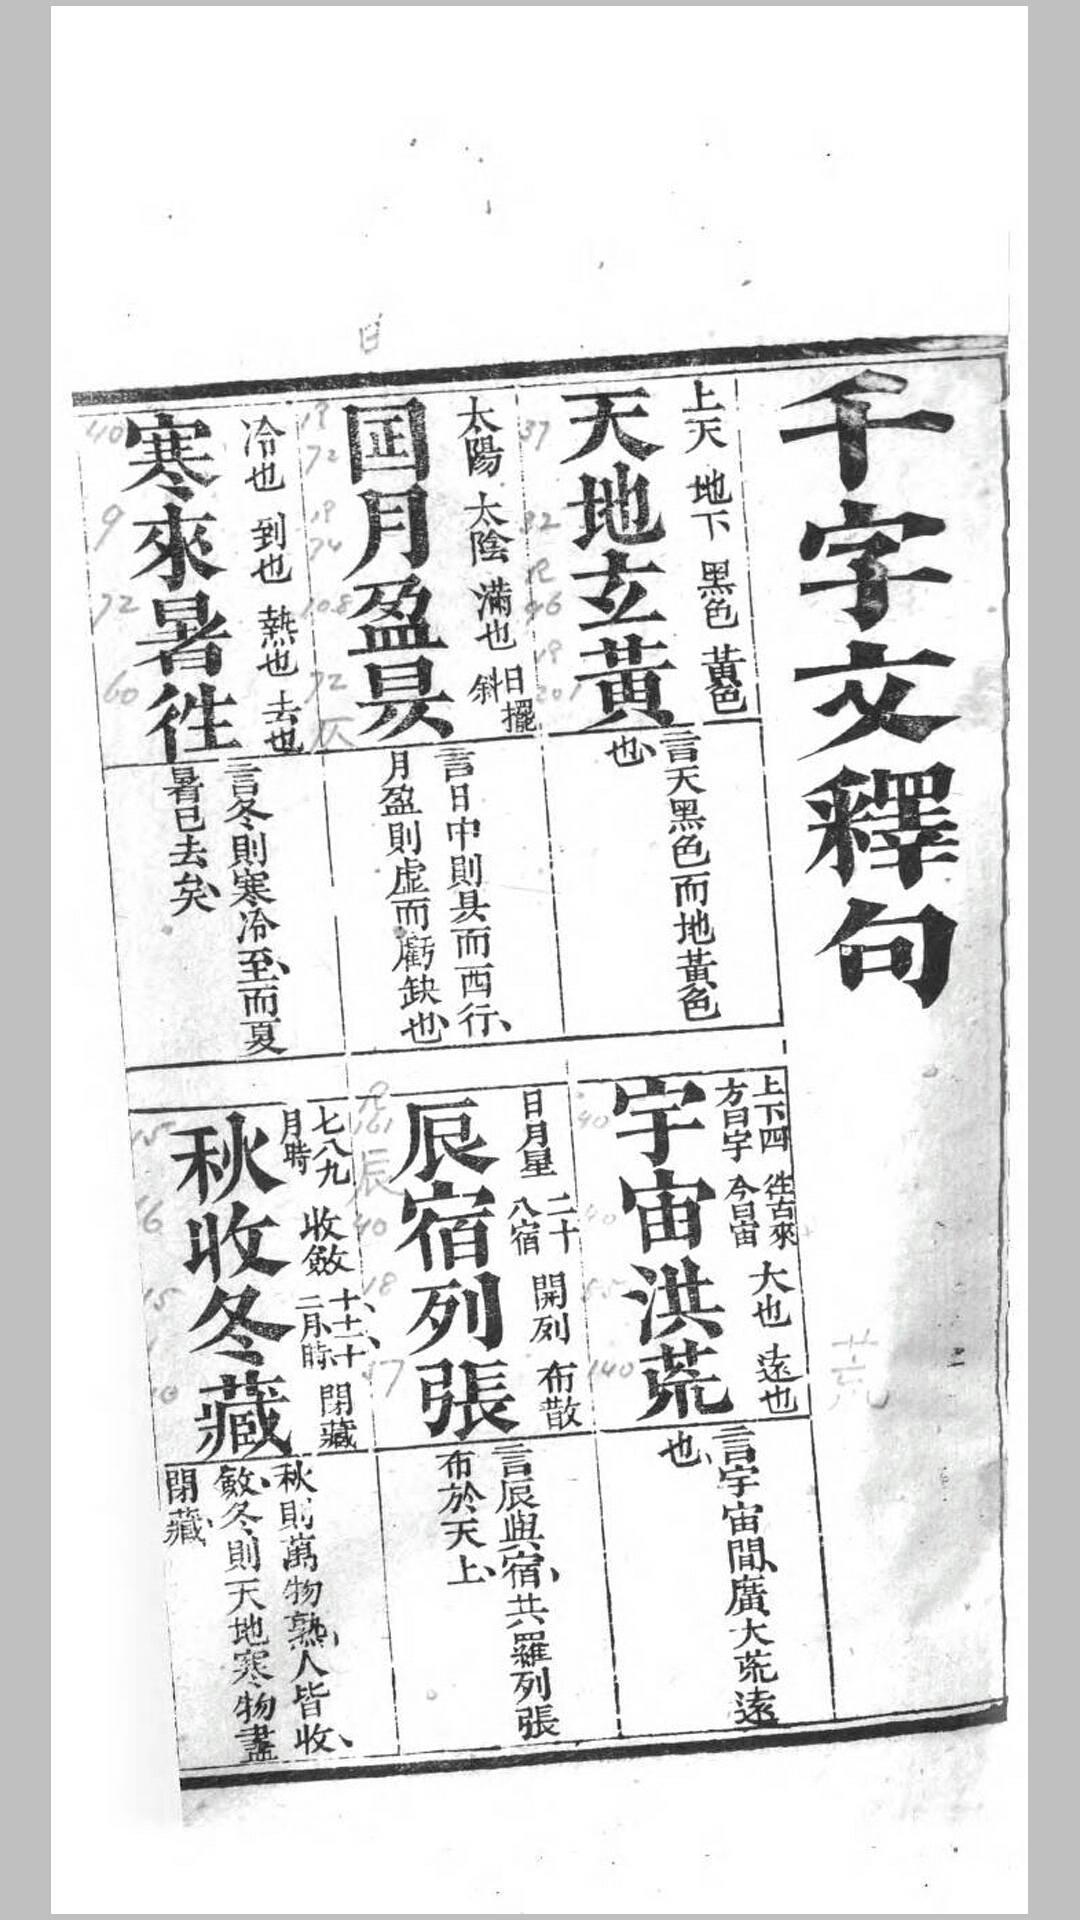 千字文釋句
上天 地下 黑色 黃色
天地玄黃
言天黑色而地黃色
也
上下四方曰宇 往古來今曰宙 大也 遠也
宇宙洪荒
言宇宙間廣大荒遠
也
太陽 太陰 滿也 日擺斜
囸月盈昃
言日中則昃而西行、
月盈則虛而虧缺也、
日月星 二十八宿 開列 布散
辰宿列張
言辰與宿、共羅列張
布於天上、
冷也 到也 熱也 去也
寒來暑往
言冬則寒冷至、而夏
暑已去矣、
七八九月時 收斂 十、十一、十二月時 閉藏
秋收冬藏
秋則萬物熟、人皆收、
斂、冬則天地寒、物盡
閉藏、
日
40
9
72
60
72
108
72
37
32
96
辰
161
40
18
37
40
55
140
荒